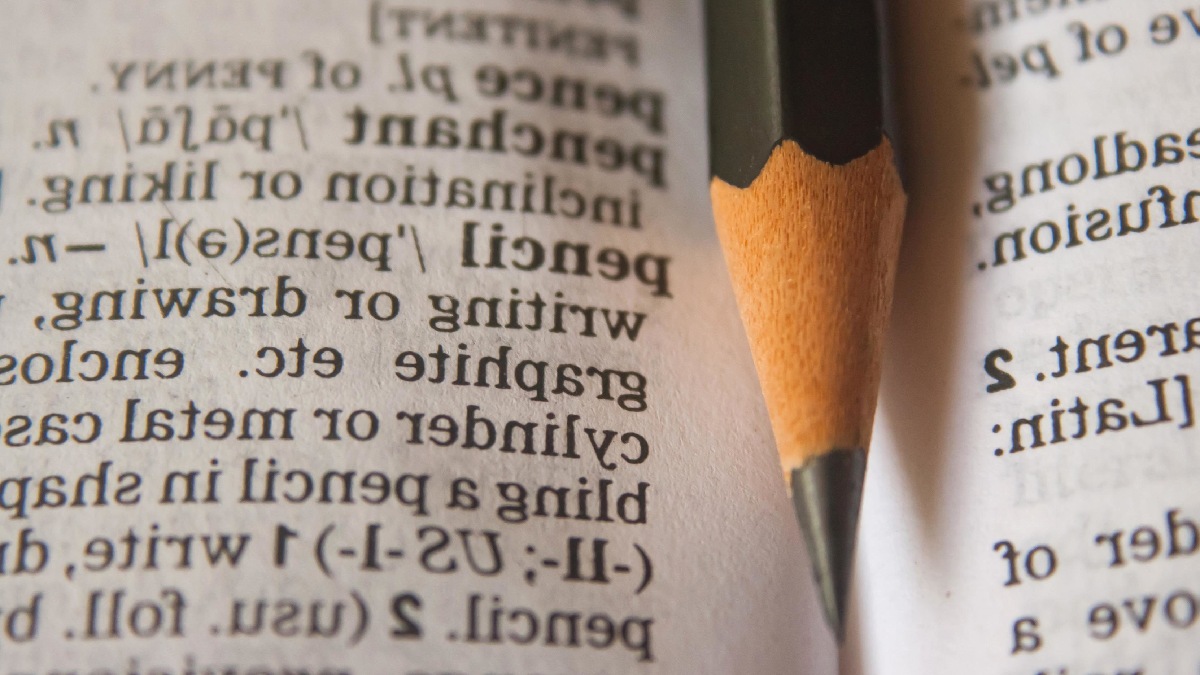 ve of pel-
eadlong,
nfusion.
arent. 2
[Latin:
der of
ove a
PENITENT]
pence pl. of PENNY.
penchant /ˈpɑ̃ʃɑ̃/ n.
inclination or liking.
pencil /ˈpens(ə)l/ —n.
writing or drawing,
graphite etc. enclos
cylinder or metal case
bling a pencil in shap
(-ll-; US -l-) 1 write, dr
pencil. 2 (usu. foll. b